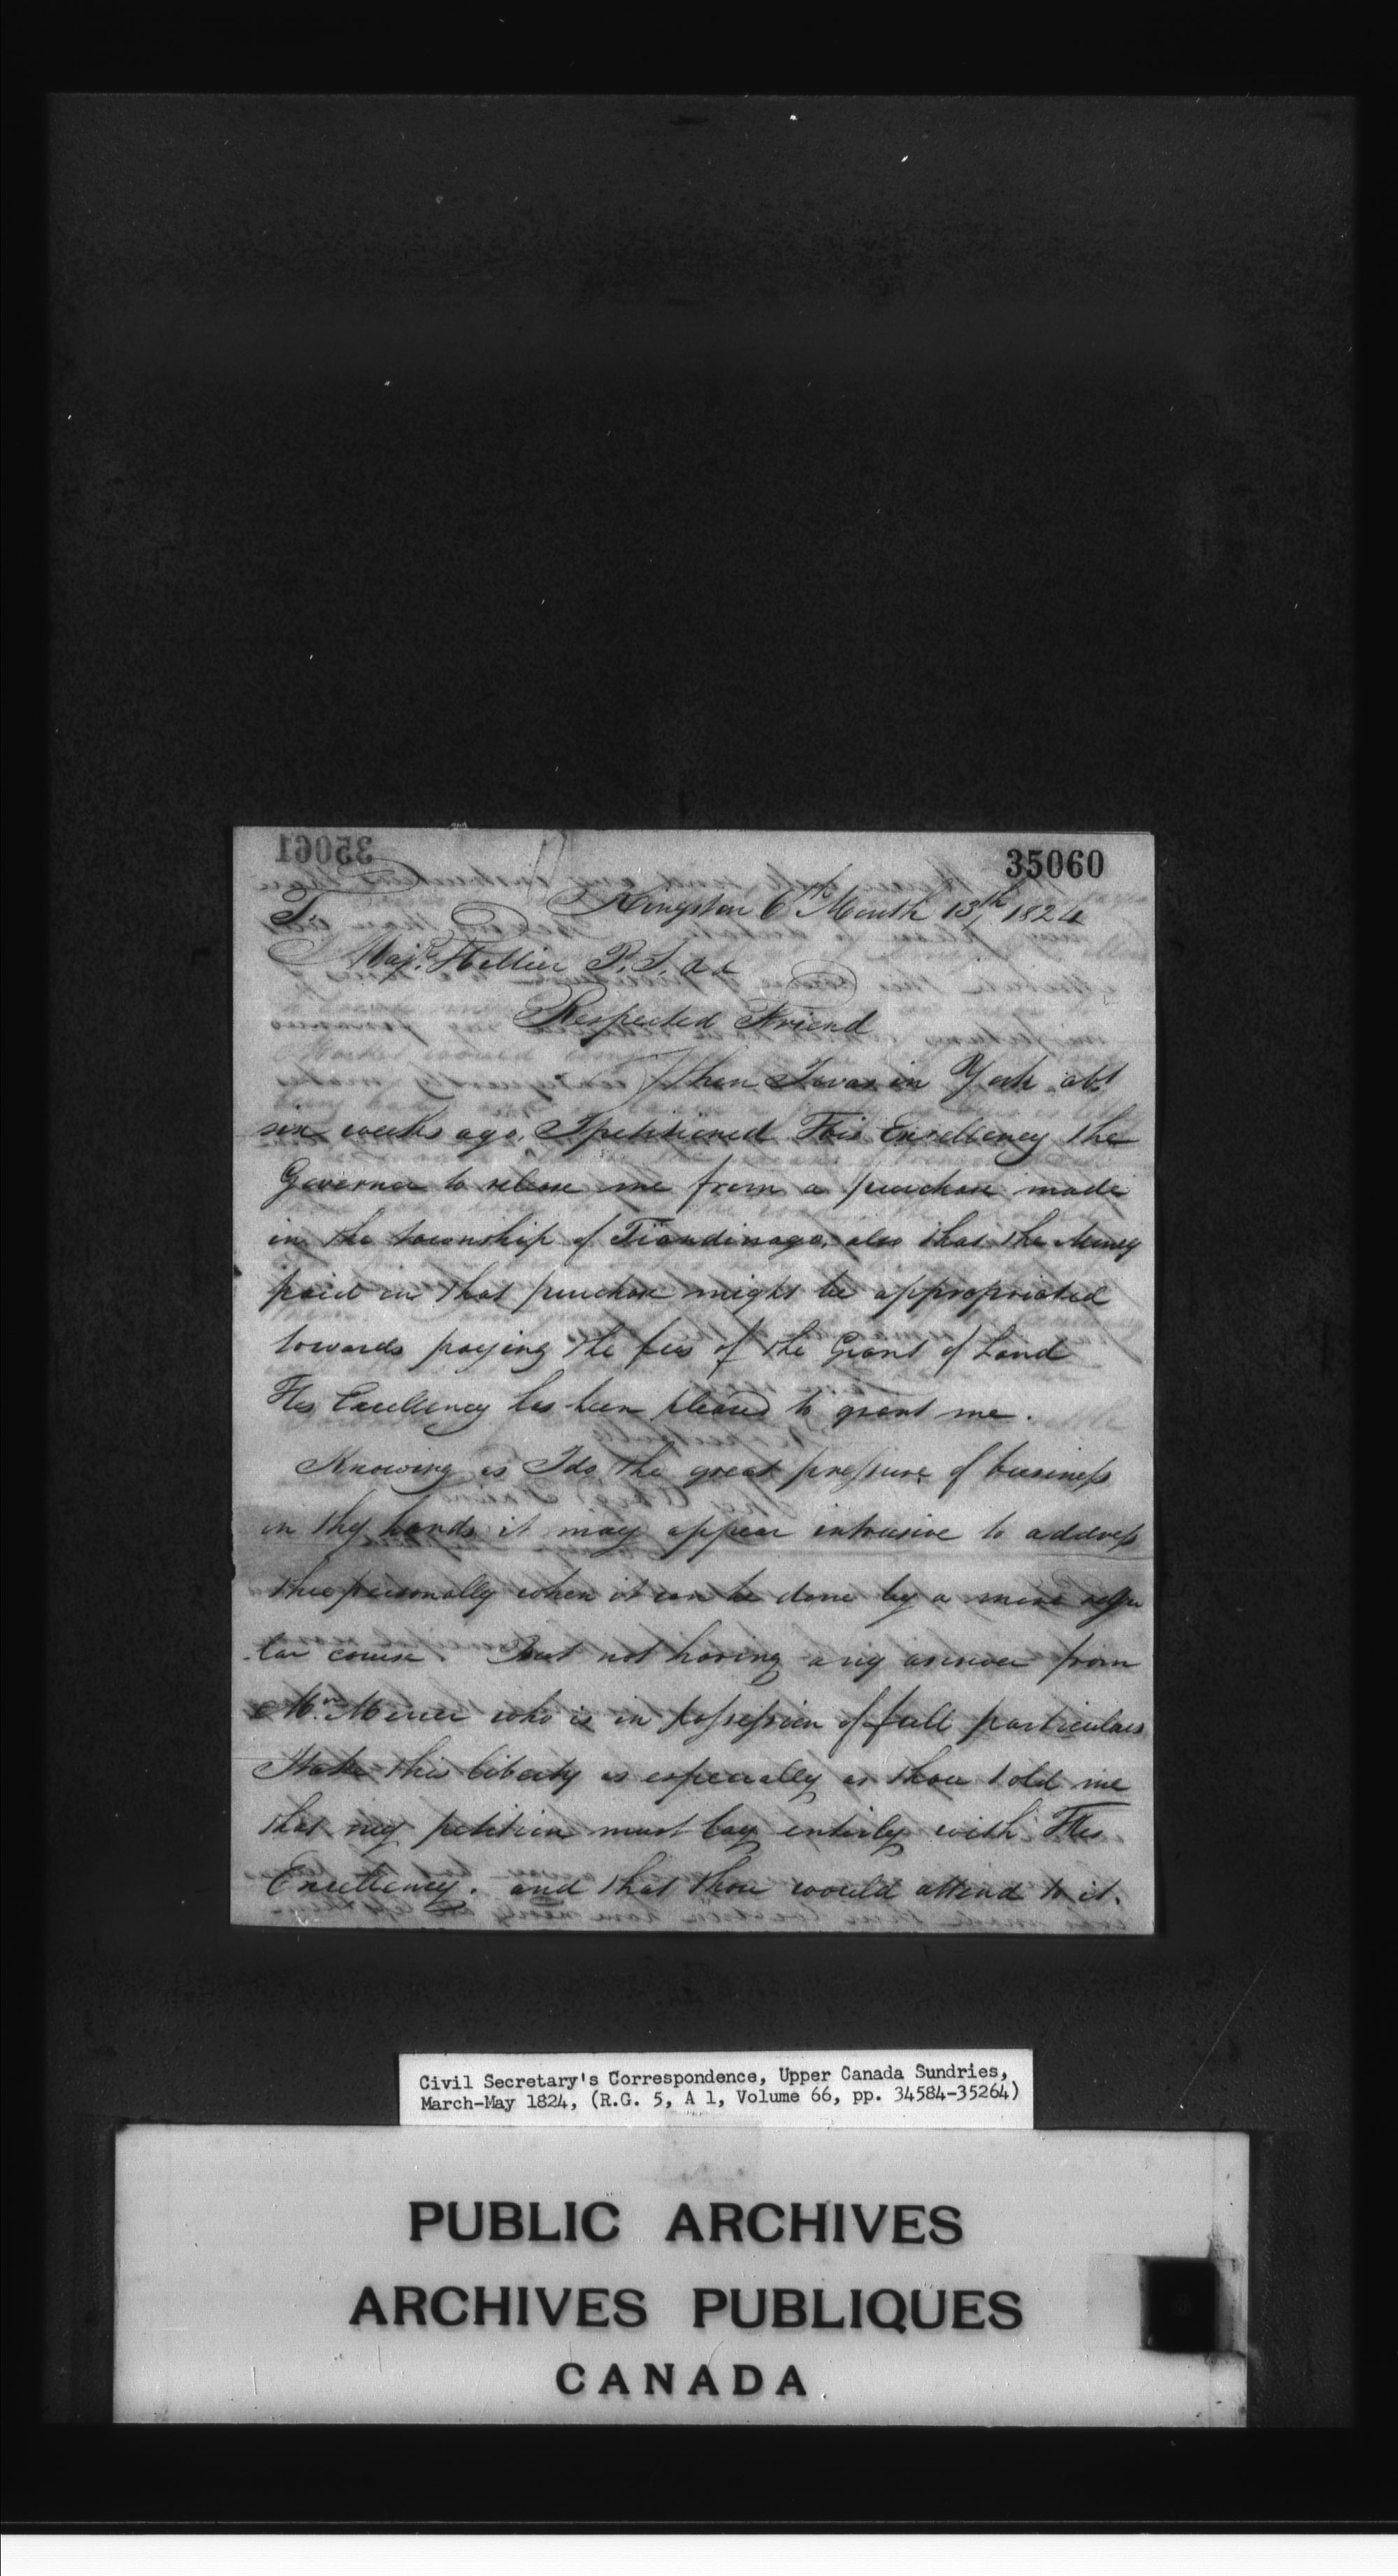 35061
35060
Kingston 6th Month 13th 1824
To
Majr. Hillier P. S. &c
Respected Friend
When I was in York abt
six weeks ago, I petitioned His Excellency the
Governor to release me from a purchase made
in the township of Tiandinago, also that the Money
paid in that purchase might be appropriated
towards paying the fees of the Grant of Land
His Excellency has been pleased to grant me.
Knowing as I do the great pressure of business
in thy hands it may appear intrusive to address
thee personally when it can be done by a more regu
lar course. but not having any answer from
Mr. Mercer who is in possession of full particulars
I take this liberty as especially as thou told me
that my petition must lay entirly with His
Excellency. and that thou would attend to it.
Civil Secretary's Correspondence, Upper Canada Sundries,
March-May 1824, (R.G. 5, A 1, Volume 66, pp. 34584-35264)
PUBLIC ARCHIVES
ARCHIVES PUBLIQUES
CANADA